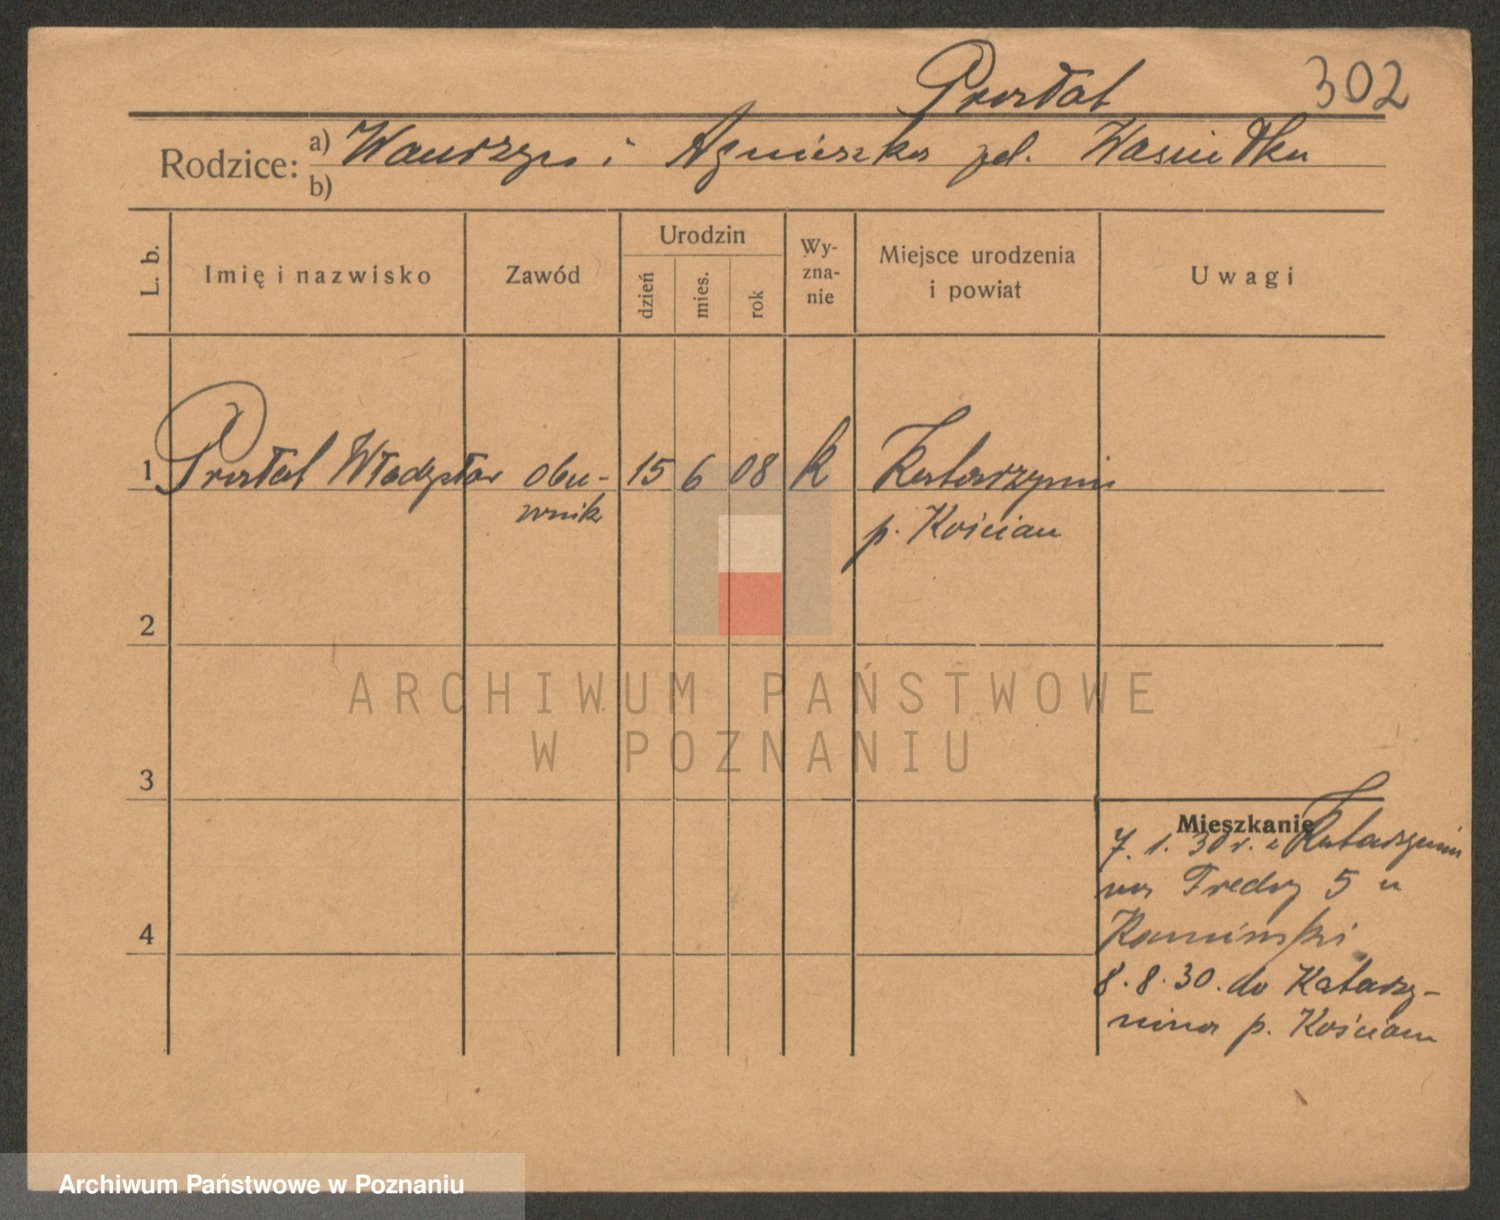 Prostat 302
Rodzice: a) Wawrzyn i Agnieszka zd.
b)
L. b. Imię i nazwisko Zawód Urodzin dzień mies. rok Wy-zna-nie Miejsce urodzenia i powiat Uwagi
1 Prostat Władysław obu- 15 6 08 k Katarzynin
wnik p. Kościan
2
ARCHIWUM PAŃSTWOWE
W POZNANIU
3
Mieszkanie
7. 1. 30 r. z Katarzynin
na Fredry 5 u
4
Kamiński
8. 8. 30. do Katarzy-
nina p. Kościan
Archiwum Państwowe w Poznaniu